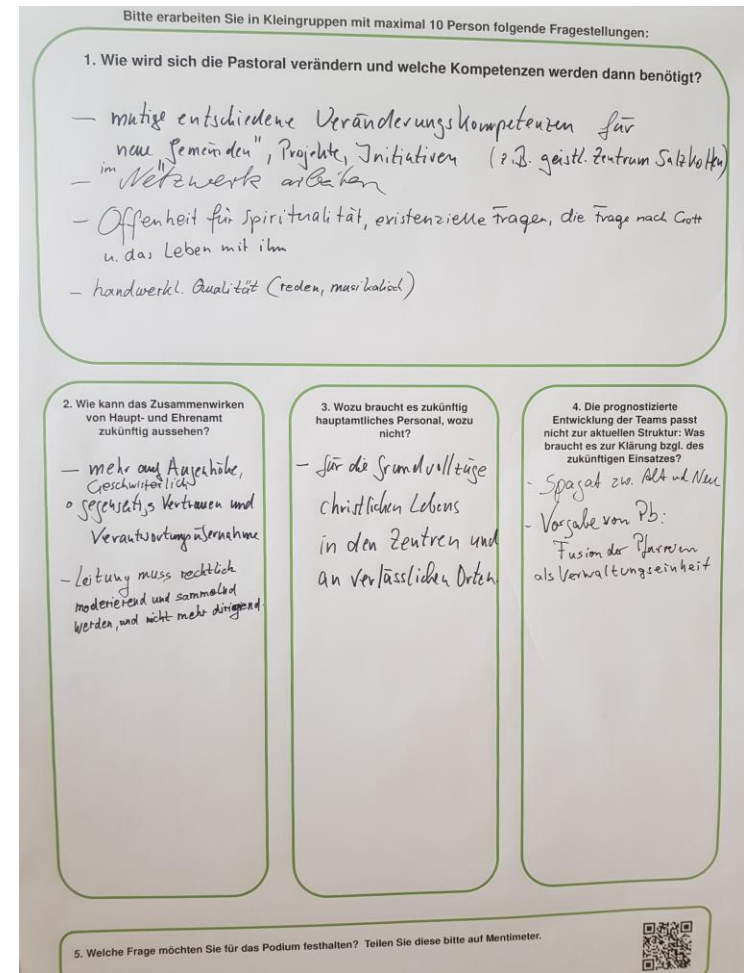 Bitte erarbeiten Sie in Kleingruppen mit maximal 10 Person folgende Fragestellungen:
1. Wie wird sich die Pastoral verändern und welche Kompetenzen werden dann benötigt?
– mutige entschiedene Veränderungskompetenzen für
neue "Gemeinden", Projekte, Initiativen (z.B. geistl. Zentrum Salzkotten)
– im Netzwerk arbeiten
– Offenheit für Spiritualität, existenzielle Fragen, die Frage nach Gott
u. das Leben mit ihm
– handwerkl. Qualität (reden, musikalisch)
2. Wie kann das Zusammenwirken
von Haupt- und Ehrenamt
zukünftig aussehen?
– mehr auf Augenhöhe,
Geschwisterlich
o gegenseitigs Vertrauen und
Verantwortungsübernahme
– Leitung muss rechtlich
moderierend und sammelnd
werden, und nicht mehr dirigierend.
3. Wozu braucht es zukünftig
hauptamtliches Personal, wozu
nicht?
– für die Grundvollzüge
christlichen Lebens
in den Zentren und
an verlässlichen Orten
4. Die prognostizierte
Entwicklung der Teams passt
nicht zur aktuellen Struktur: Was
braucht es zur Klärung bzgl. des
zukünftigen Einsatzes?
- Spagat zw. Alt und Neu
- Vorgabe von Pb:
Fusion der Pfarreien
als Verwaltungseinheit
5. Welche Frage möchten Sie für das Podium festhalten? Teilen Sie diese bitte auf Mentimeter.